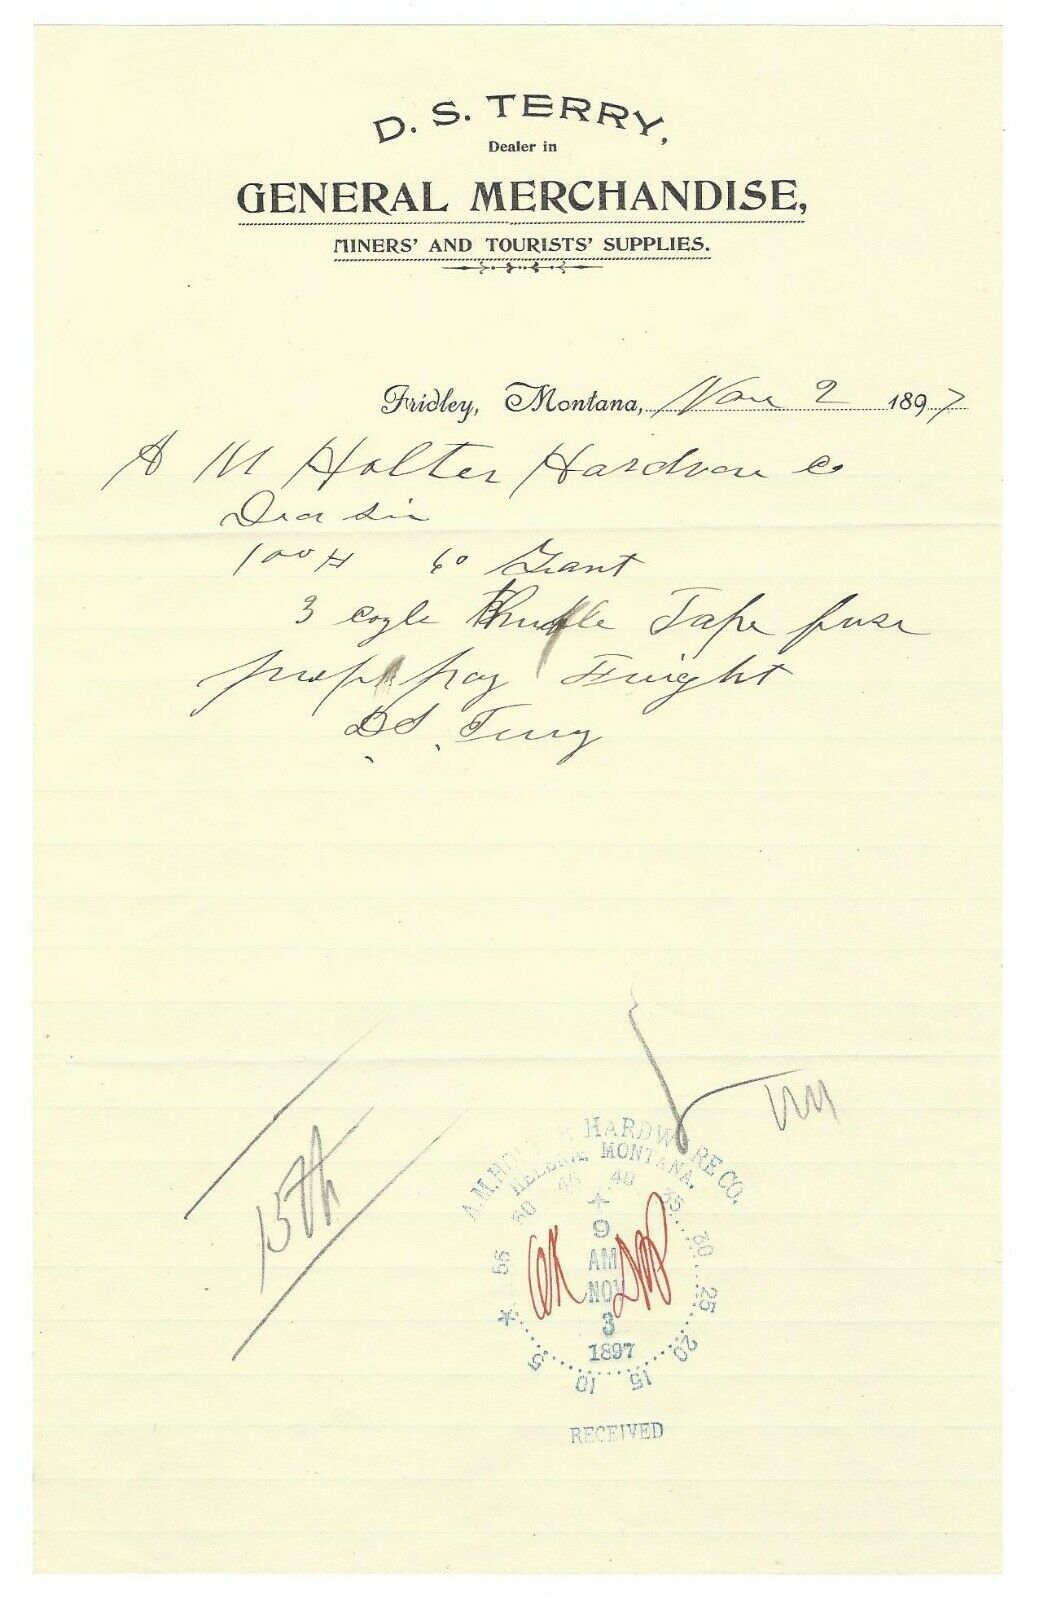 D. S. TERRY,
Dealer in
GENERAL MERCHANDISE,
MINERS' AND TOURISTS' SUPPLIES.
Fridley, Montana, Nov 2 1897
A M Holter Hardware Co
Dear Sir
100 # 60 Giant
3 coyle Tape fuse
pay Freight
D.S. Terry
15th
A.M. HOLTER HARDWARE CO.
HELENA, MONTANA.
55 50 45 40 35 30 25 20 15 10 5
9
AM
NOV
3
1897
OK
RECEIVED